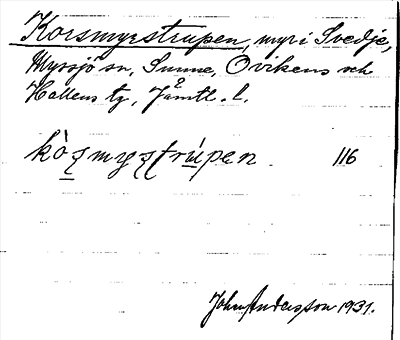 Korsmyrstrupen, myr i Svedje,
Myssjö sn, Sunne, Ovikens och
Hallens tg, Jämtl. l.
kòs̱myʂʈrúpen 116
John Andersson 1931.